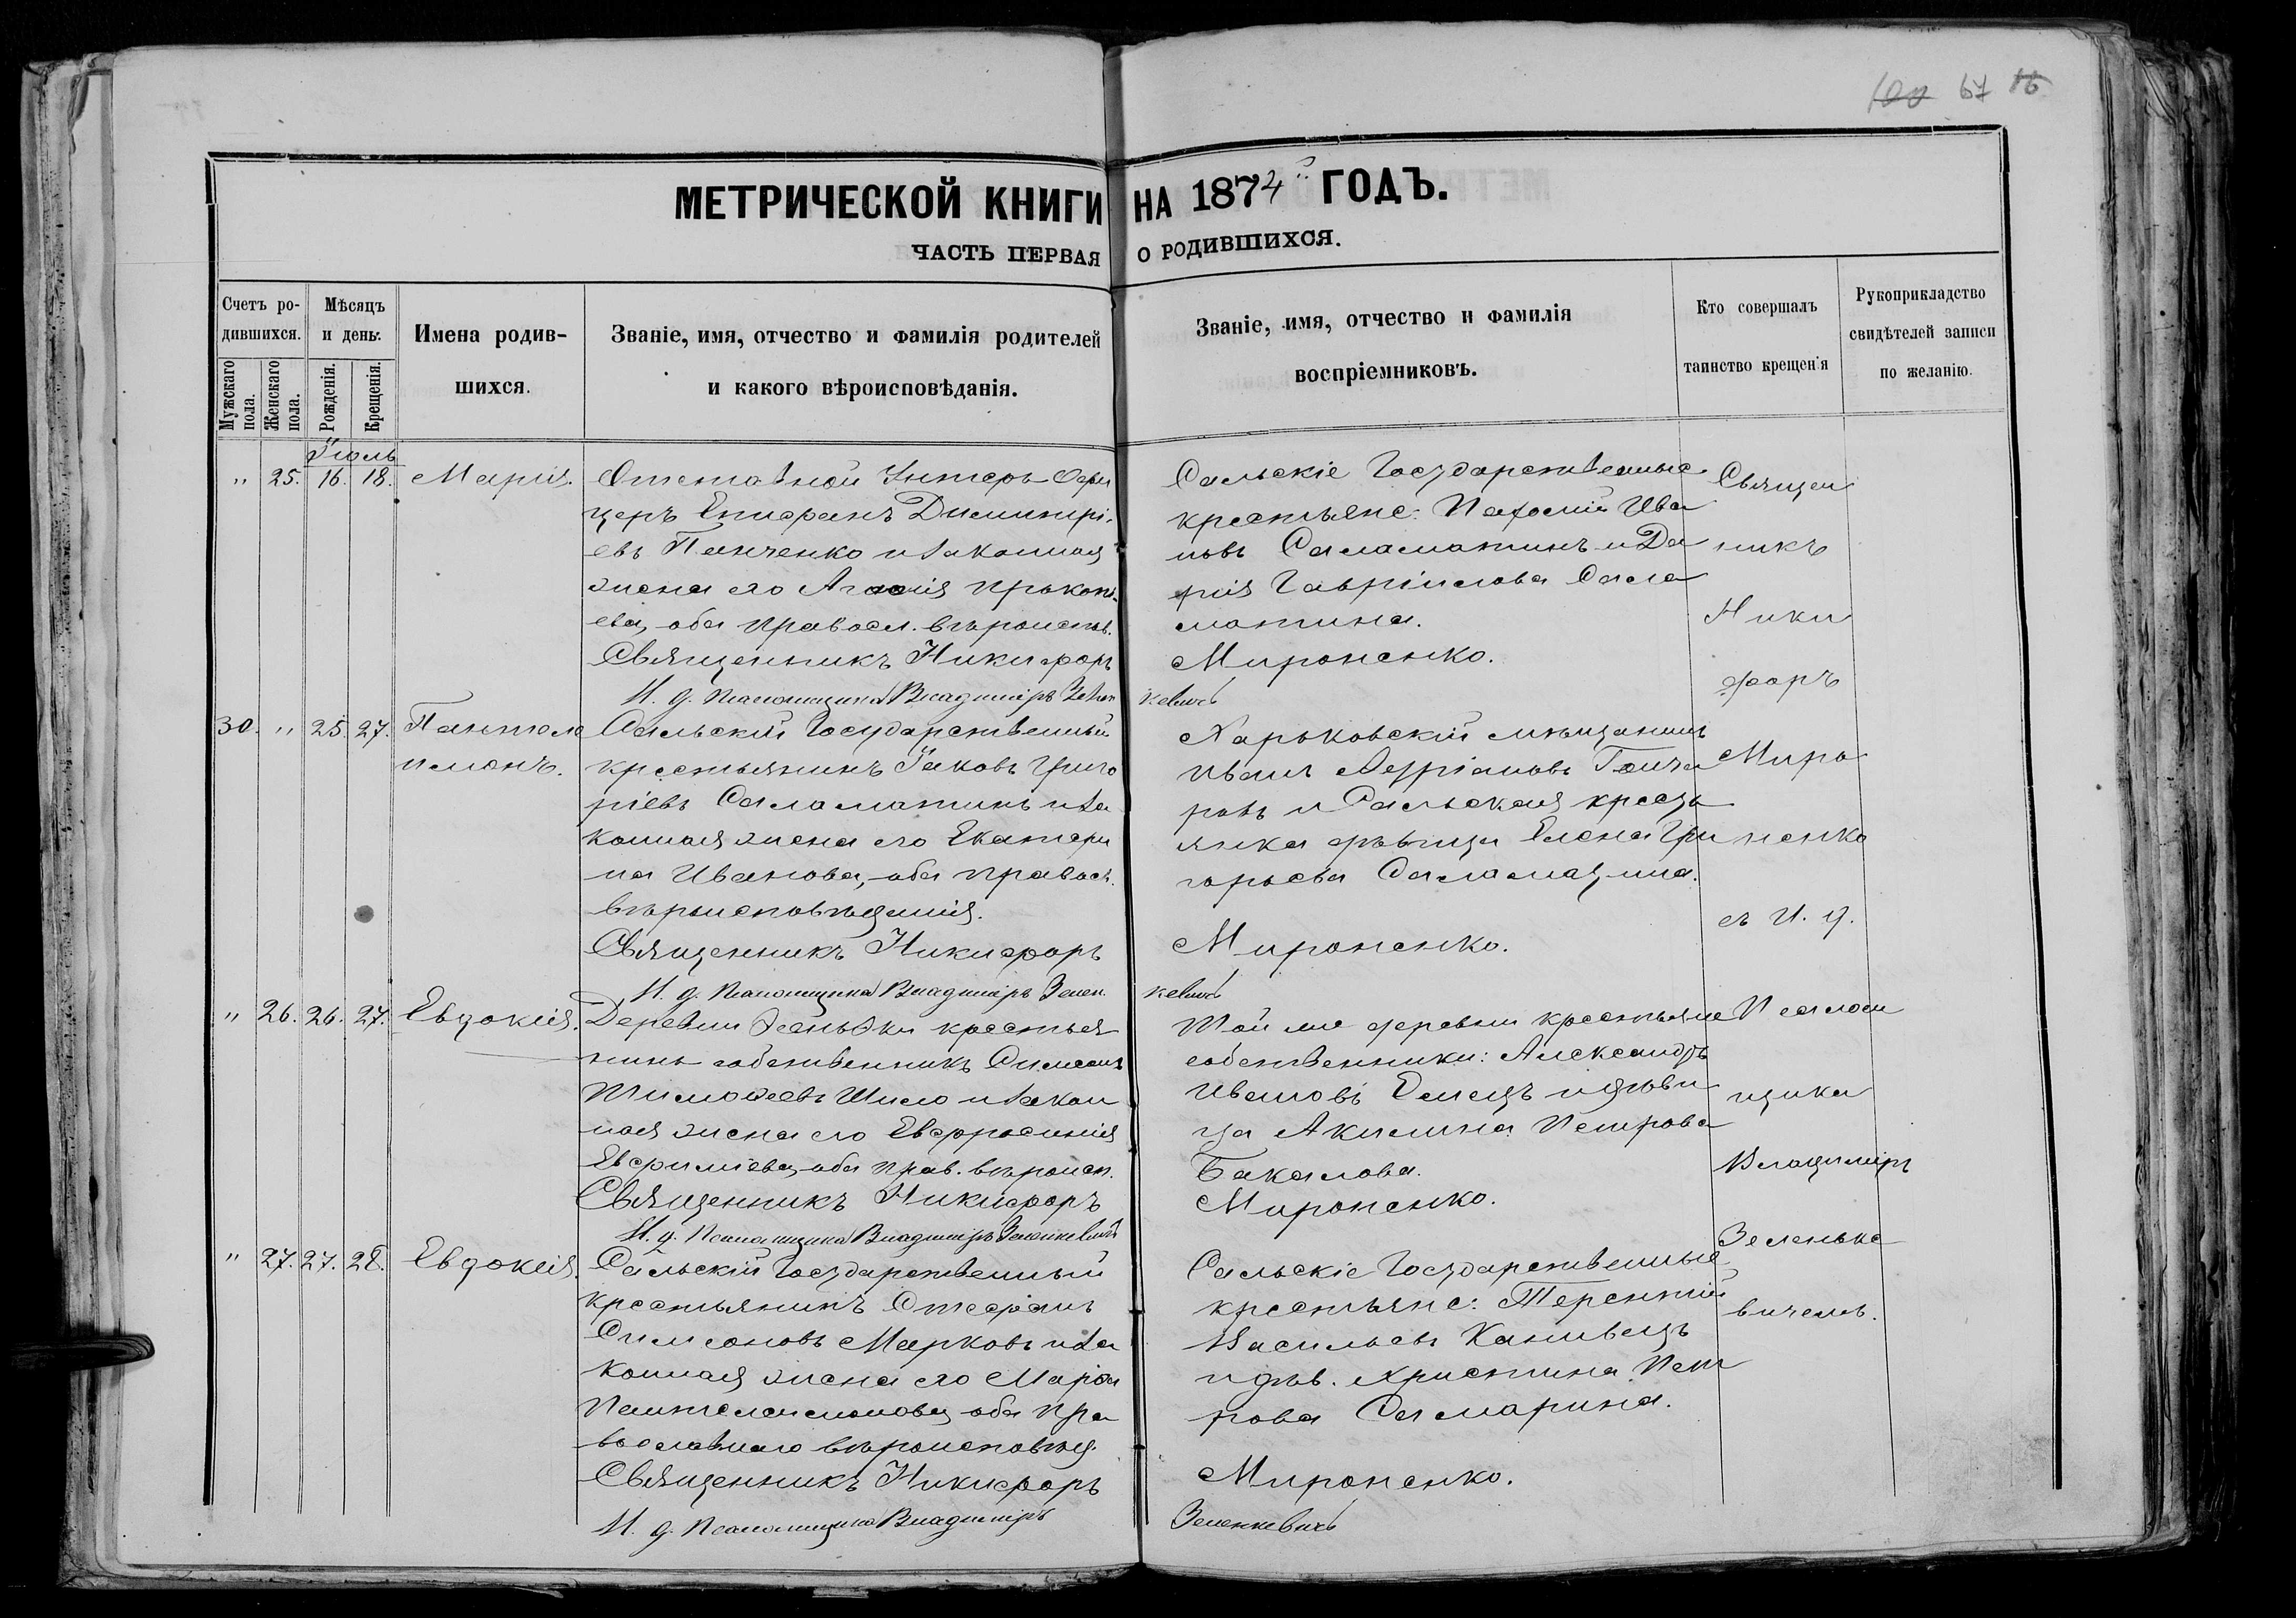 100 67 16
МЕТРИЧЕСКОЙ КНИГИ НА 1874й ГОДЪ.
ЧАСТЬ ПЕРВАЯ О РОДИВШИХСЯ.
Счетъ ро-
дившихся.
Мужскаго пола.
Женскаго пола.
Мѣсяцъ
и день.
Рожденія.
Крещенія.
Имена родив-
шихся.
Званіе, имя, отчество и фамилія родителей
и какого вѣроисповѣданія.
Званіе, имя, отчество и фамилія
воспріемниковъ.
Кто совершалъ
таинство крещенія
Рукоприкладство
свидѣтелей записи
по желанію.
Іюль
" 25. 16. 18. Марія.
Отставной Унтеръ Офи
церъ Епифанъ Димитрі-
евъ Панченко и закоmная
жена его Агафія Прокопі-
ева, оба правосл. вѣроиспов.
Священникъ Никифоръ
И. д. Псаломщика Владиміръ Зелен
Сальскіе Государственные
крестьяне: Пахомій Ива
новъ Саламатинъ и Да
рія Гавріилова Сала
матина.
Мироненко.
кевичъ
30. " 25. 27. Пантеле
имонъ.
Сальскій Государственный
крестьянинъ Іаковъ Григо
ріевъ Саламатинъ и за
конная жена его Екатери
на Иванова, оба правосл.
вѣроисповѣданія.
Священникъ Никифоръ
И. д. Псаломщика Владиміръ Зелен
Харьковскій мѣщанинъ
Иванъ Андріановъ Гонча
ровъ и Сальская кресть
янка дѣвица Елена Гри
горьева Саламатина.
Мироненко.
кевичъ
" 26. 26. 27. Евдокія.
Деревни крестья
нинъ собственникъ Симеонъ
Тимоѳеевъ Шило и закон
ная жена его Евфросинія
Евфиміева, оба прав. вѣроисп.
Священникъ Никифоръ
И. д. Псаломщика Владиміръ Зеленкевичъ
Той же деревни крестьяне
собственники: Александръ
Ивановъ Емецъ и дѣви
ца Акилина Петрова
Бакалова.
Мироненко.
" 27. 27. 28. Евдокія.
Сальскій Государственный
крестьянинъ Стефанъ
Симеоновъ Марковъ и за
конная жена его Марѳа
Пантелеимонова, оба пра
вославнаго вѣроисповѣд.
Священникъ Никифоръ
И. д. Псаломщика Владиміръ
Сальскіе Государственные
крестьяне: Терентій
Васильевъ Канивецъ
и дѣв. Христина Пет
рова Самарина.
Мироненко.
Зеленкевичъ
Священ
никъ
Ники
форъ
Миро
ненко
съ И. д.
Псалом
щика
Владиміръ
Зеленке
вичемъ.